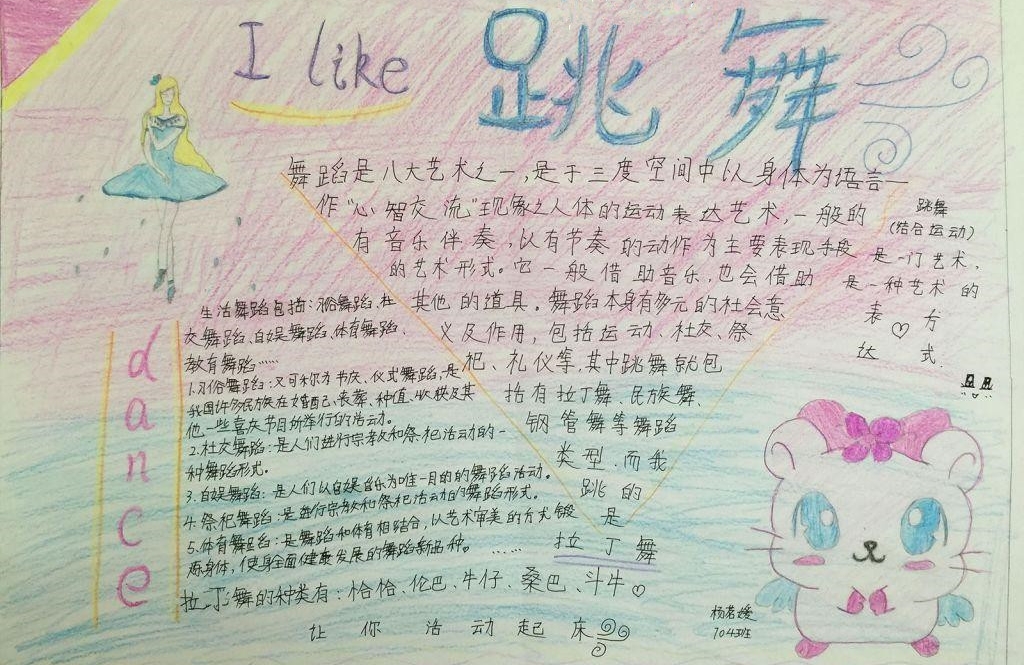 I like 跳舞
舞蹈是八大艺术之一,是于三度空间中以身体为语言
作“心智交流”现象之人体的运动表达艺术,一般的
有音乐伴奏,以有节奏的动作为主要表现手段
的艺术形式。它一般借助音乐,也会借助
其他的道具。舞蹈本身有多元的社会意
义及作用,包括运动、社交、祭
祀、礼仪等,其中跳舞就包
括有拉丁舞、民族舞、
钢管舞等舞蹈
类型.而我
跳的
是
拉丁舞
跳舞
(结合运动)
是一门艺术,
是一种艺术的
表♡方
达 式.
dance
生活舞蹈包括:习俗舞蹈、社
交舞蹈、自娱舞蹈、体育舞蹈、
教育舞蹈……
1.习俗舞蹈:又可称为节庆、仪式舞蹈,是
我国许多民族在婚配、丧葬、种植、收获及其
他一些喜庆节目所举行的活动。
2.社交舞蹈:是人们进行宗教和祭祀活动的一
种舞蹈形式。
3.自娱舞蹈:是人们以自娱自乐为唯一目的的舞蹈活动。
4.祭祀舞蹈:是进行宗教和祭祀活动的舞蹈形式。
5.体育舞蹈:是舞蹈和体育相结合,以艺术审美的方式锻
炼身体,使身全面健康发展的舞蹈新品种。 ……
拉丁舞的种类有:恰恰、伦巴、牛仔、桑巴、斗牛♡
让你活动起床
杨茗媛
704班